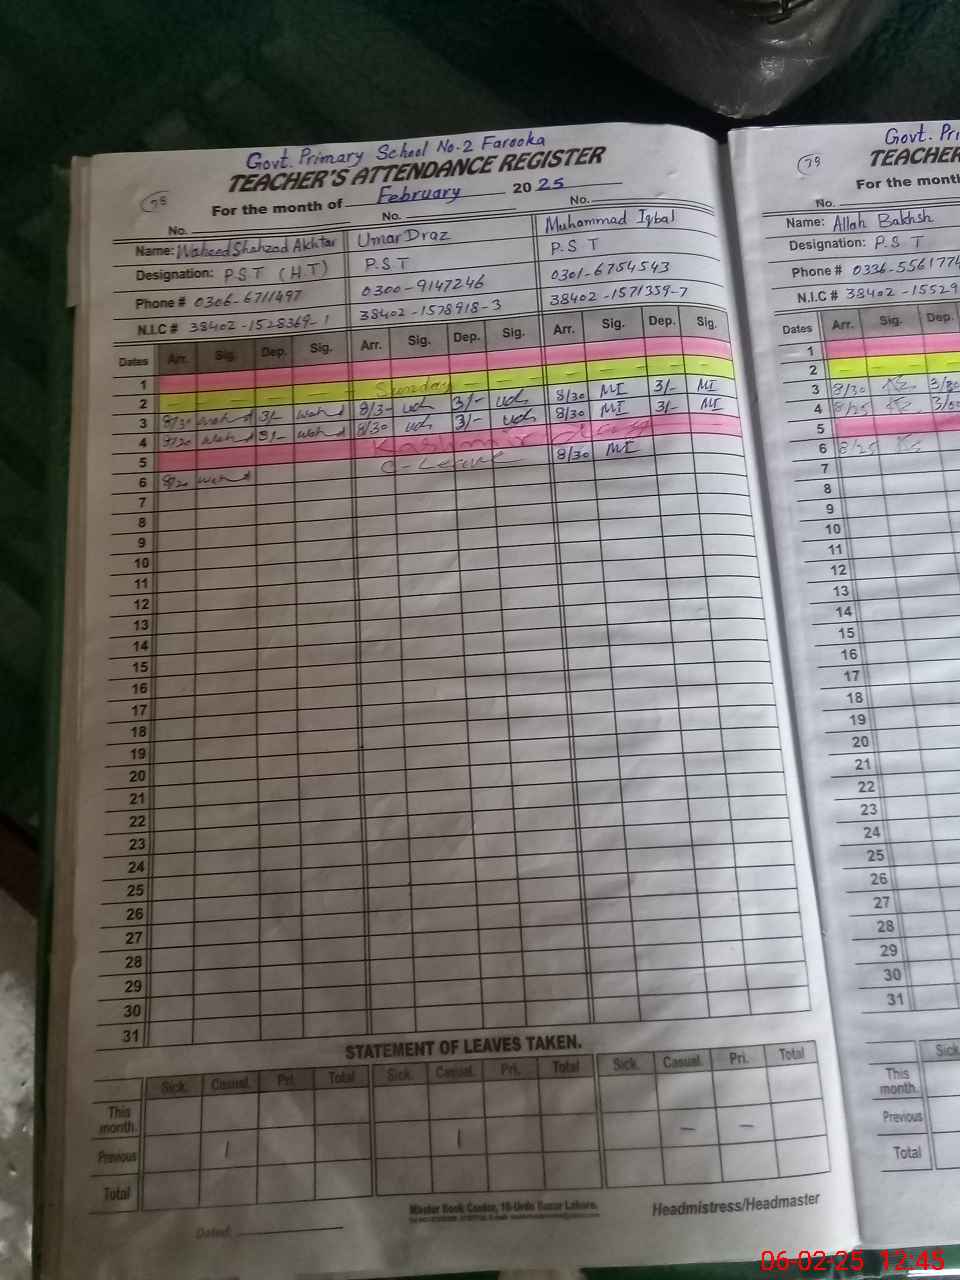 Govt. Primary School No.2 Farooka
TEACHER'S ATTENDANCE REGISTER
78
For the month of February 2025
No. No. No.
Name: Waheed Shahzad Akhtar Umar Draz Muhammad Iqbal
Designation: P.S.T (H.T) P.S.T P.S.T
Phone # 0306-6711497 0300-9147246 0301-6754543
N.I.C # 38402-1528369-1 38402-1578918-3 38402-1571359-7
Dates Arr. Sig. Dep. Sig. Arr. Sig. Dep. Sig. Arr. Sig. Dep. Sig.
1
2 Sunday
3 8/30 3/- 8/3- 3/- 8/30 MI 3/- MI
4 8/30 3/- 8/30 3/- 8/30 MI 3/- MI
5 Kashmir Day
6 C-Leave 8/30 MI
7
8
9
10
11
12
13
14
15
16
17
18
19
20
21
22
23
24
25
26
27
28
29
30
31
STATEMENT OF LEAVES TAKEN.
Sick. Casual. Pri. Total Sick. Casual. Pri. Total Sick. Casual. Pri. Total
This month.
Previous 1 1 – –
Total
Master Book Center, 16-Urdu Bazar Lahore.
Dated: Headmistress/Headmaster
Govt. Pri
79
TEACHER
For the month
No.
Name: Allah Bakhsh
Designation: P.S.T
Phone # 0336-556177
N.I.C # 38402-15529
Dates Arr. Sig. Dep.
1
2
3 8/30 3/30
4 8/25 3/00
5
6 8/25
7
8
9
10
11
12
13
14
15
16
17
18
19
20
21
22
23
24
25
26
27
28
29
30
31
Sick.
This month.
Previous
Total
06-02-25 12:45